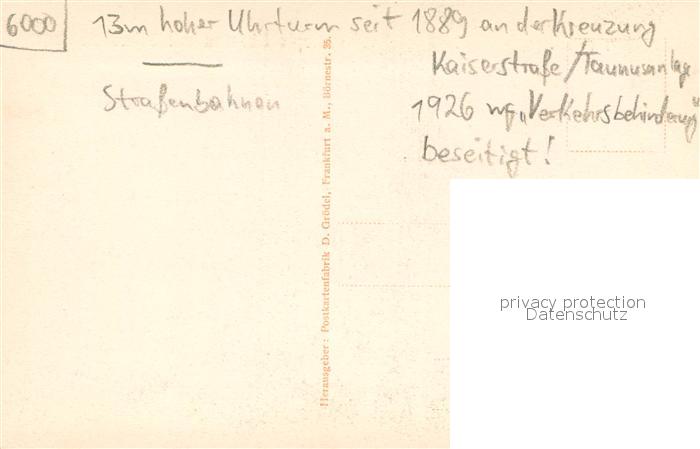 6000
13m hoher Uhrturm seit 1889 an der Kreuzung
Kaiserstraße/Taunusanlage
Straßenbahnen
1926 wg. „Verkehrsbehinderung“
beseitigt!
Herausgeber: Postkartenfabrik D. Grödel, Frankfurt a. M., Börnestr. 35.
privacy protection
Datenschutz